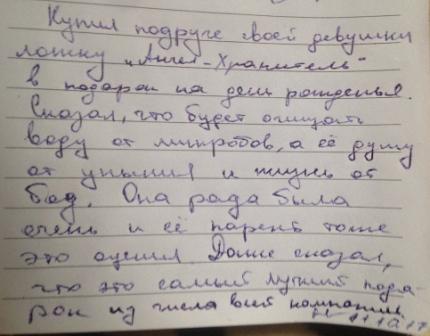 Купил подруге своей девушки
ложку „Ангел-Хранитель"
в подарок на день рожденья.
Сказал, что будет очищать
воду от микробов, а её душу
от уныния и жизнь от
бед. Она рада была
очень и её парень тоже
это оценил. Даже сказал,
что это самый лучший пода-
рок из числа всей компании.